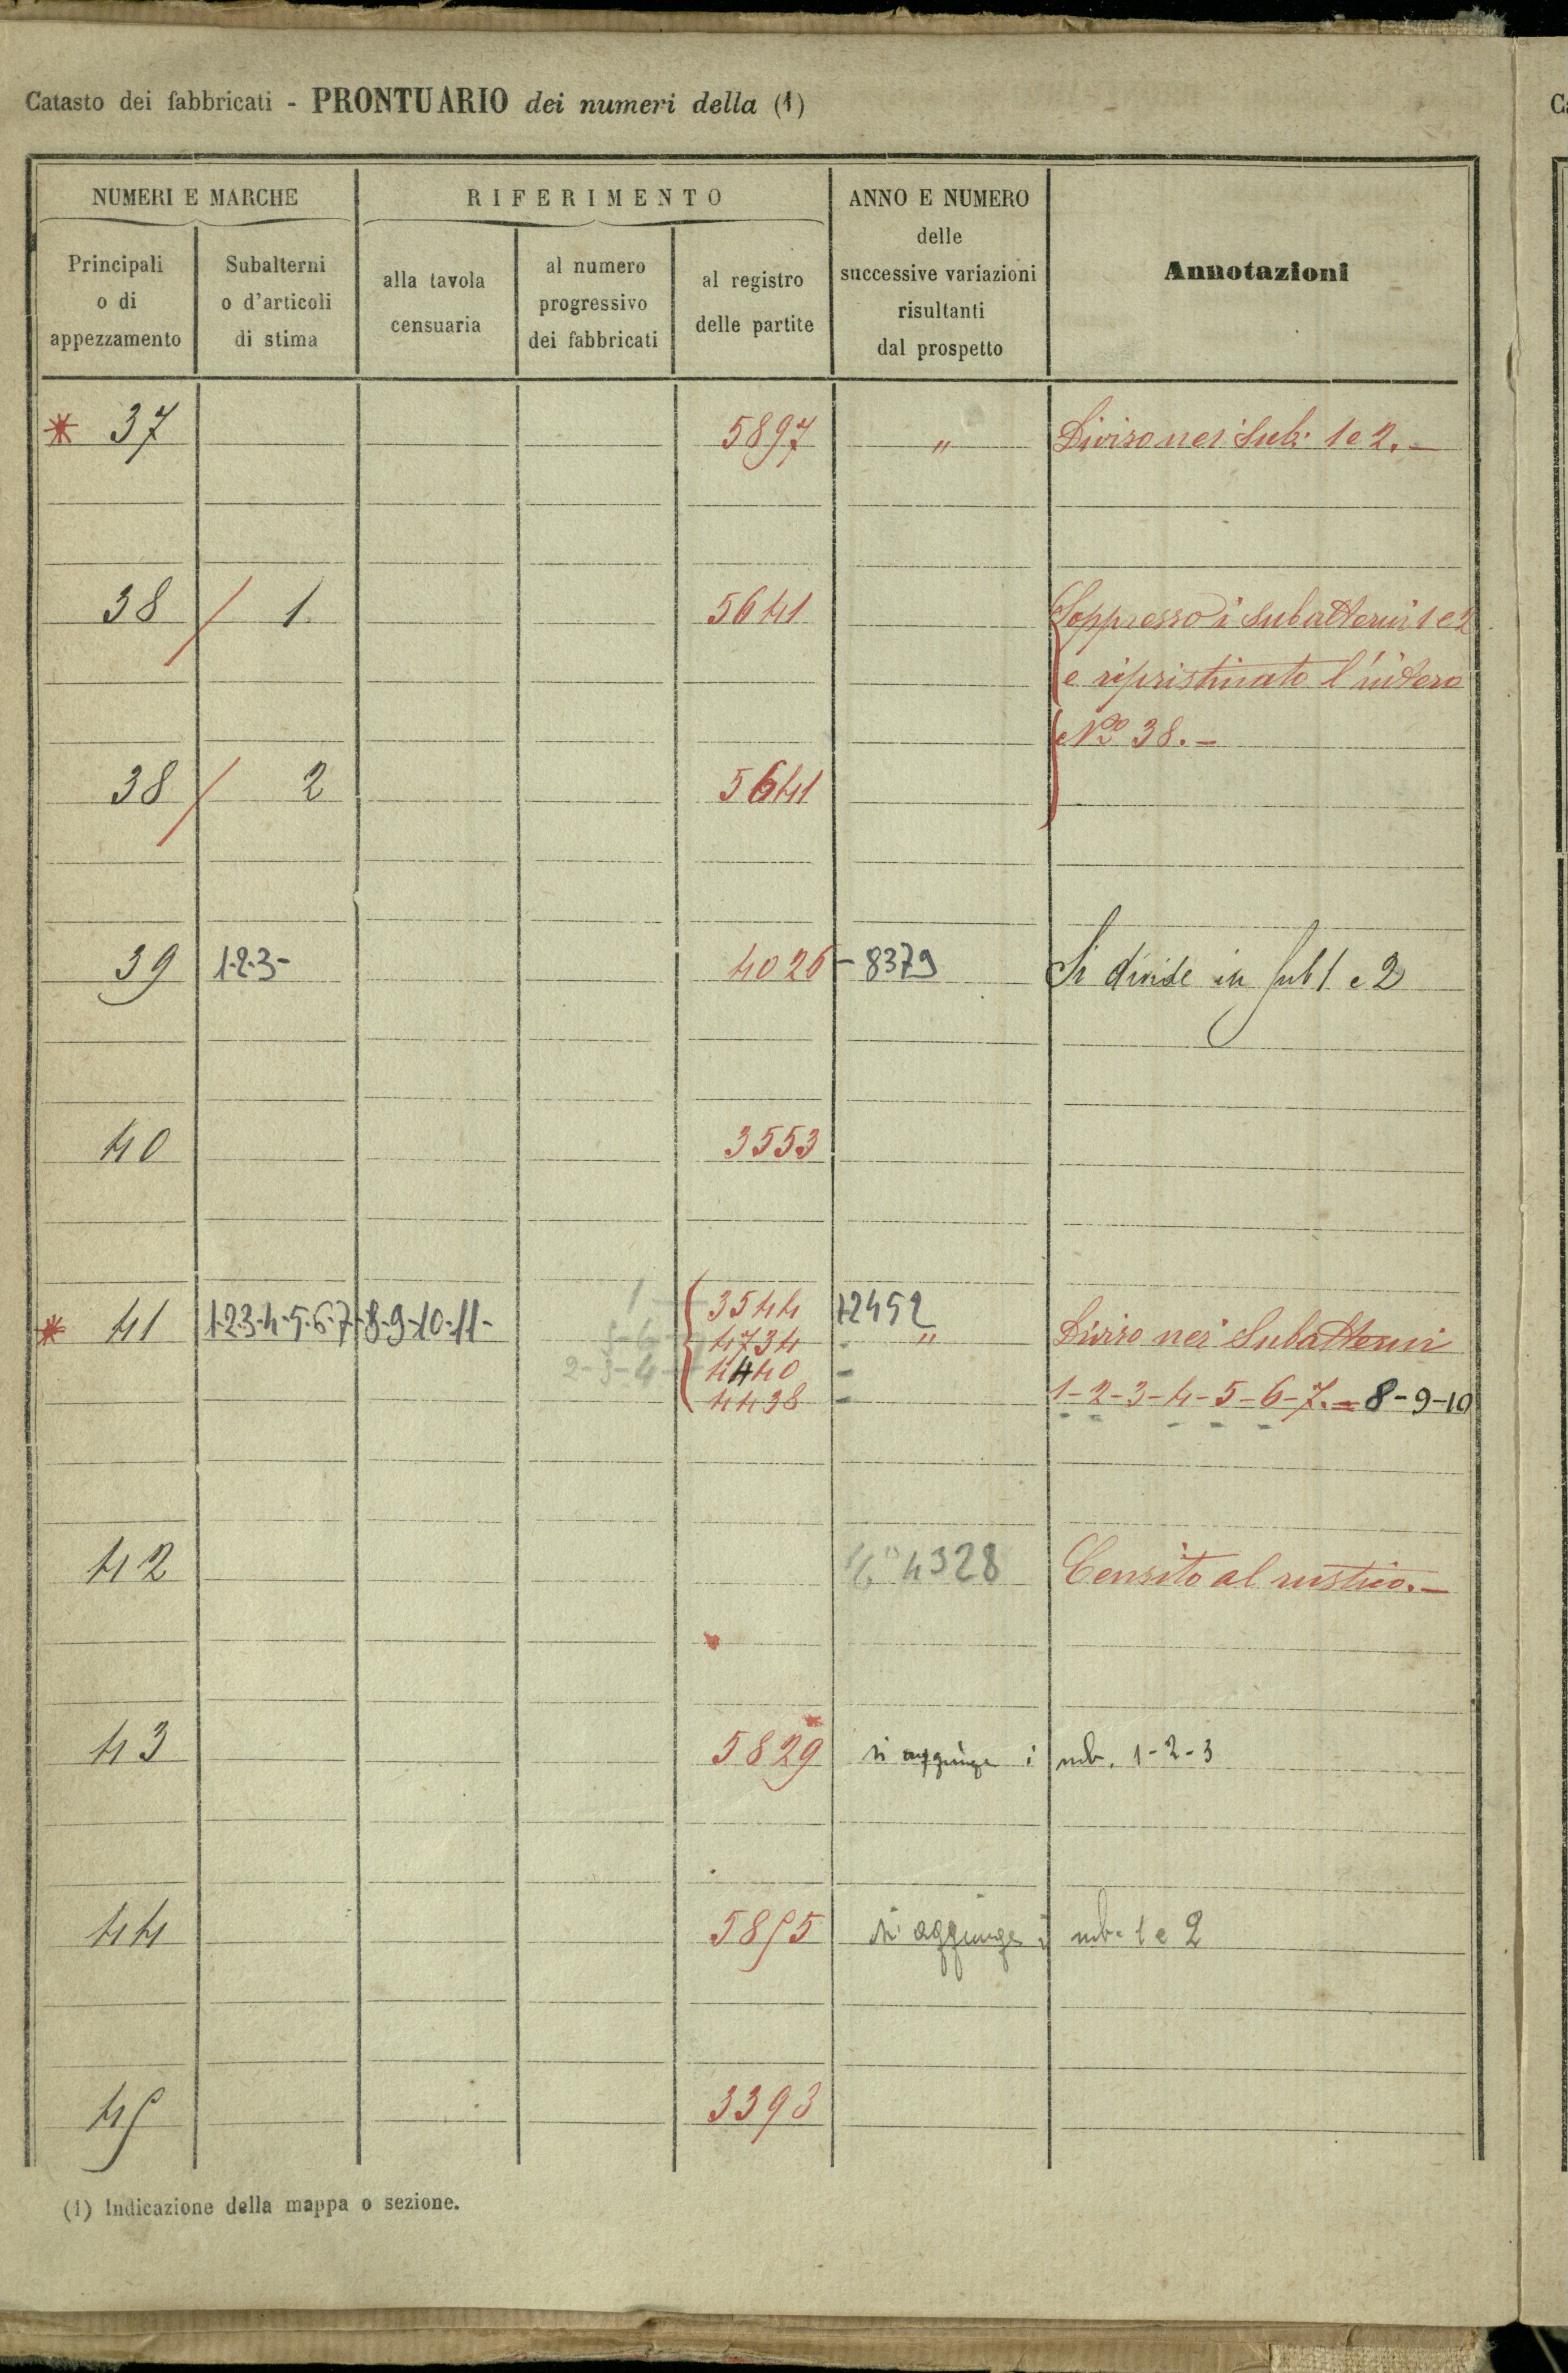 Catasto dei fabbricati - PRONTUARIO dei numeri della (1)
NUMERI E MARCHE
RIFERIMENTO
ANNO E NUMERO
delle
successive variazioni
risultanti
dal prospetto
Annotazioni
Principali
o di
appezzamento
Subalterni
o d'articoli
di stima
alla tavola
censuaria
al numero
progressivo
dei fabbricati
al registro
delle partite
* 37 5897 " Diviso nei Sub: 1 e 2.-
38 / 1 5641 Soppresso i subalterni 1 e 2
e ripristinato l'intero
No 38.-
38 / 2 5641
39 1-2-3- 4026 - 8379 Si divide in Sub 1 e 2
40 3553
* 41 1-2-3-4-5-6-7-8-9-10-11- 1 3544 12452
4734 " Diviso nei Subalterni
2-3-4 4440 -
4438 - 1-2-3-4-5-6-7.= 8-9-10
42 4328 Censito al rustico.-
43 5829 si aggiunge i sub. 1-2-3
44 5895 si aggiunge i sub. 1 e 2
45 3393
(1) Indicazione della mappa o sezione.